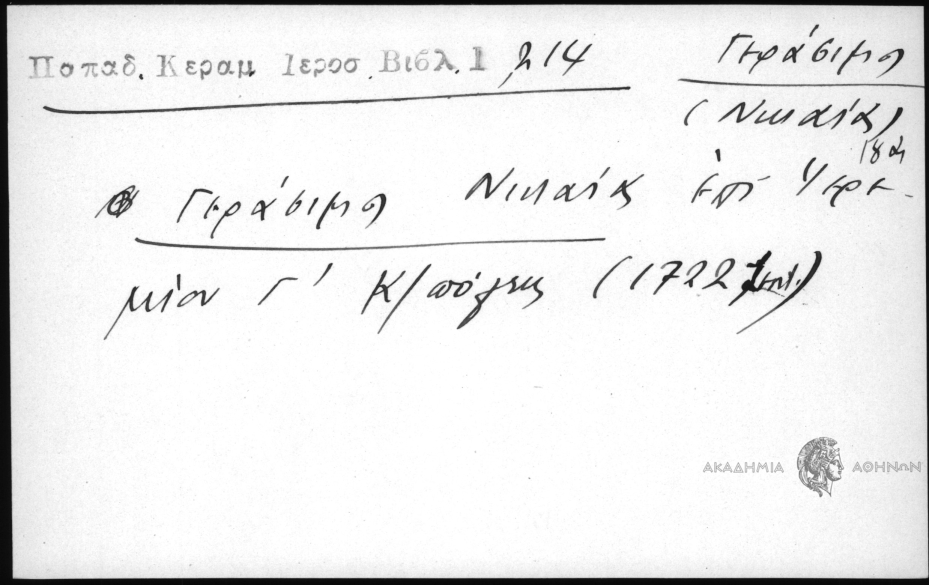 Παπαδ. Κεραμ Ιεροσ. Βιβλ. 1 214
Γεράσιμος
(Νικαίας)
18 αι
Γεράσιμος Νικαίας ἐπὶ Ἱερε-
μίου Γ' Κ/πόλεως (1722
ΑΚΑΔΗΜΙΑ ΑΘΗΝΩΝ